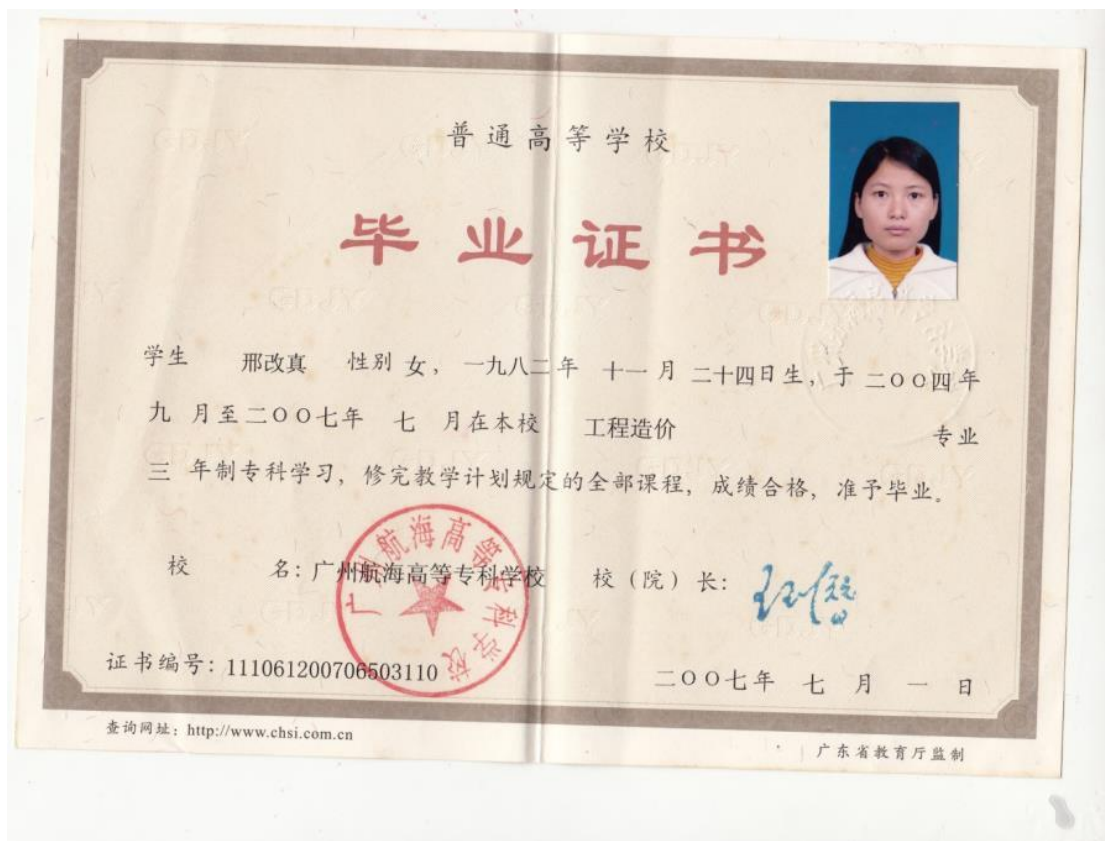 普通高等学校
毕业证书
学生 邢改真 性别 女，一九八二年 十一月 二十四日生，于 二〇〇四年
九 月至二〇〇七年 七 月在本校 工程造价 专业
三 年制专科学习，修完教学计划规定的全部课程，成绩合格，准予毕业。
校 名：广州航海高等专科学校 校（院）长：
广州航海高等专科学校
证书编号：111061200706503110 二〇〇七年 七 月 一 日
查询网址：http://www.chsi.com.cn 广东省教育厅监制